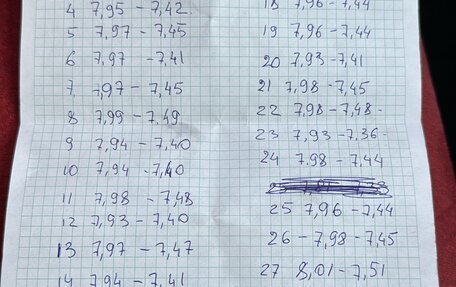 4 7,95 – 7,42
5 7,97 – 7,45
6 7,97 – 7,41
7 7,97 – 7,45
8 7,99 – 7,49
9 7,94 – 7,40
10 7,94 – 7,40
11 7,98 – 7,48
12 7,93 – 7,40
13 7,97 – 7,47
14 7,94 – 7,41
18 7,96 – 7,44
19 7,96 – 7,44
20 7,93 – 7,41
21 7,98 – 7,45
22 7,98 – 7,48 -
23 7,93 – 7,36 -
24 7.98 – 7,44
25 7,96 – 7,44
26 – 7,98 – 7,45
27 8,01 – 7,51